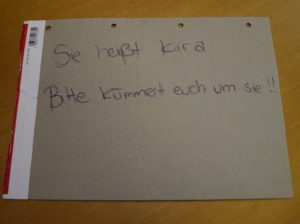 Sie heißt Kira
Bitte kümmert euch um sie!!